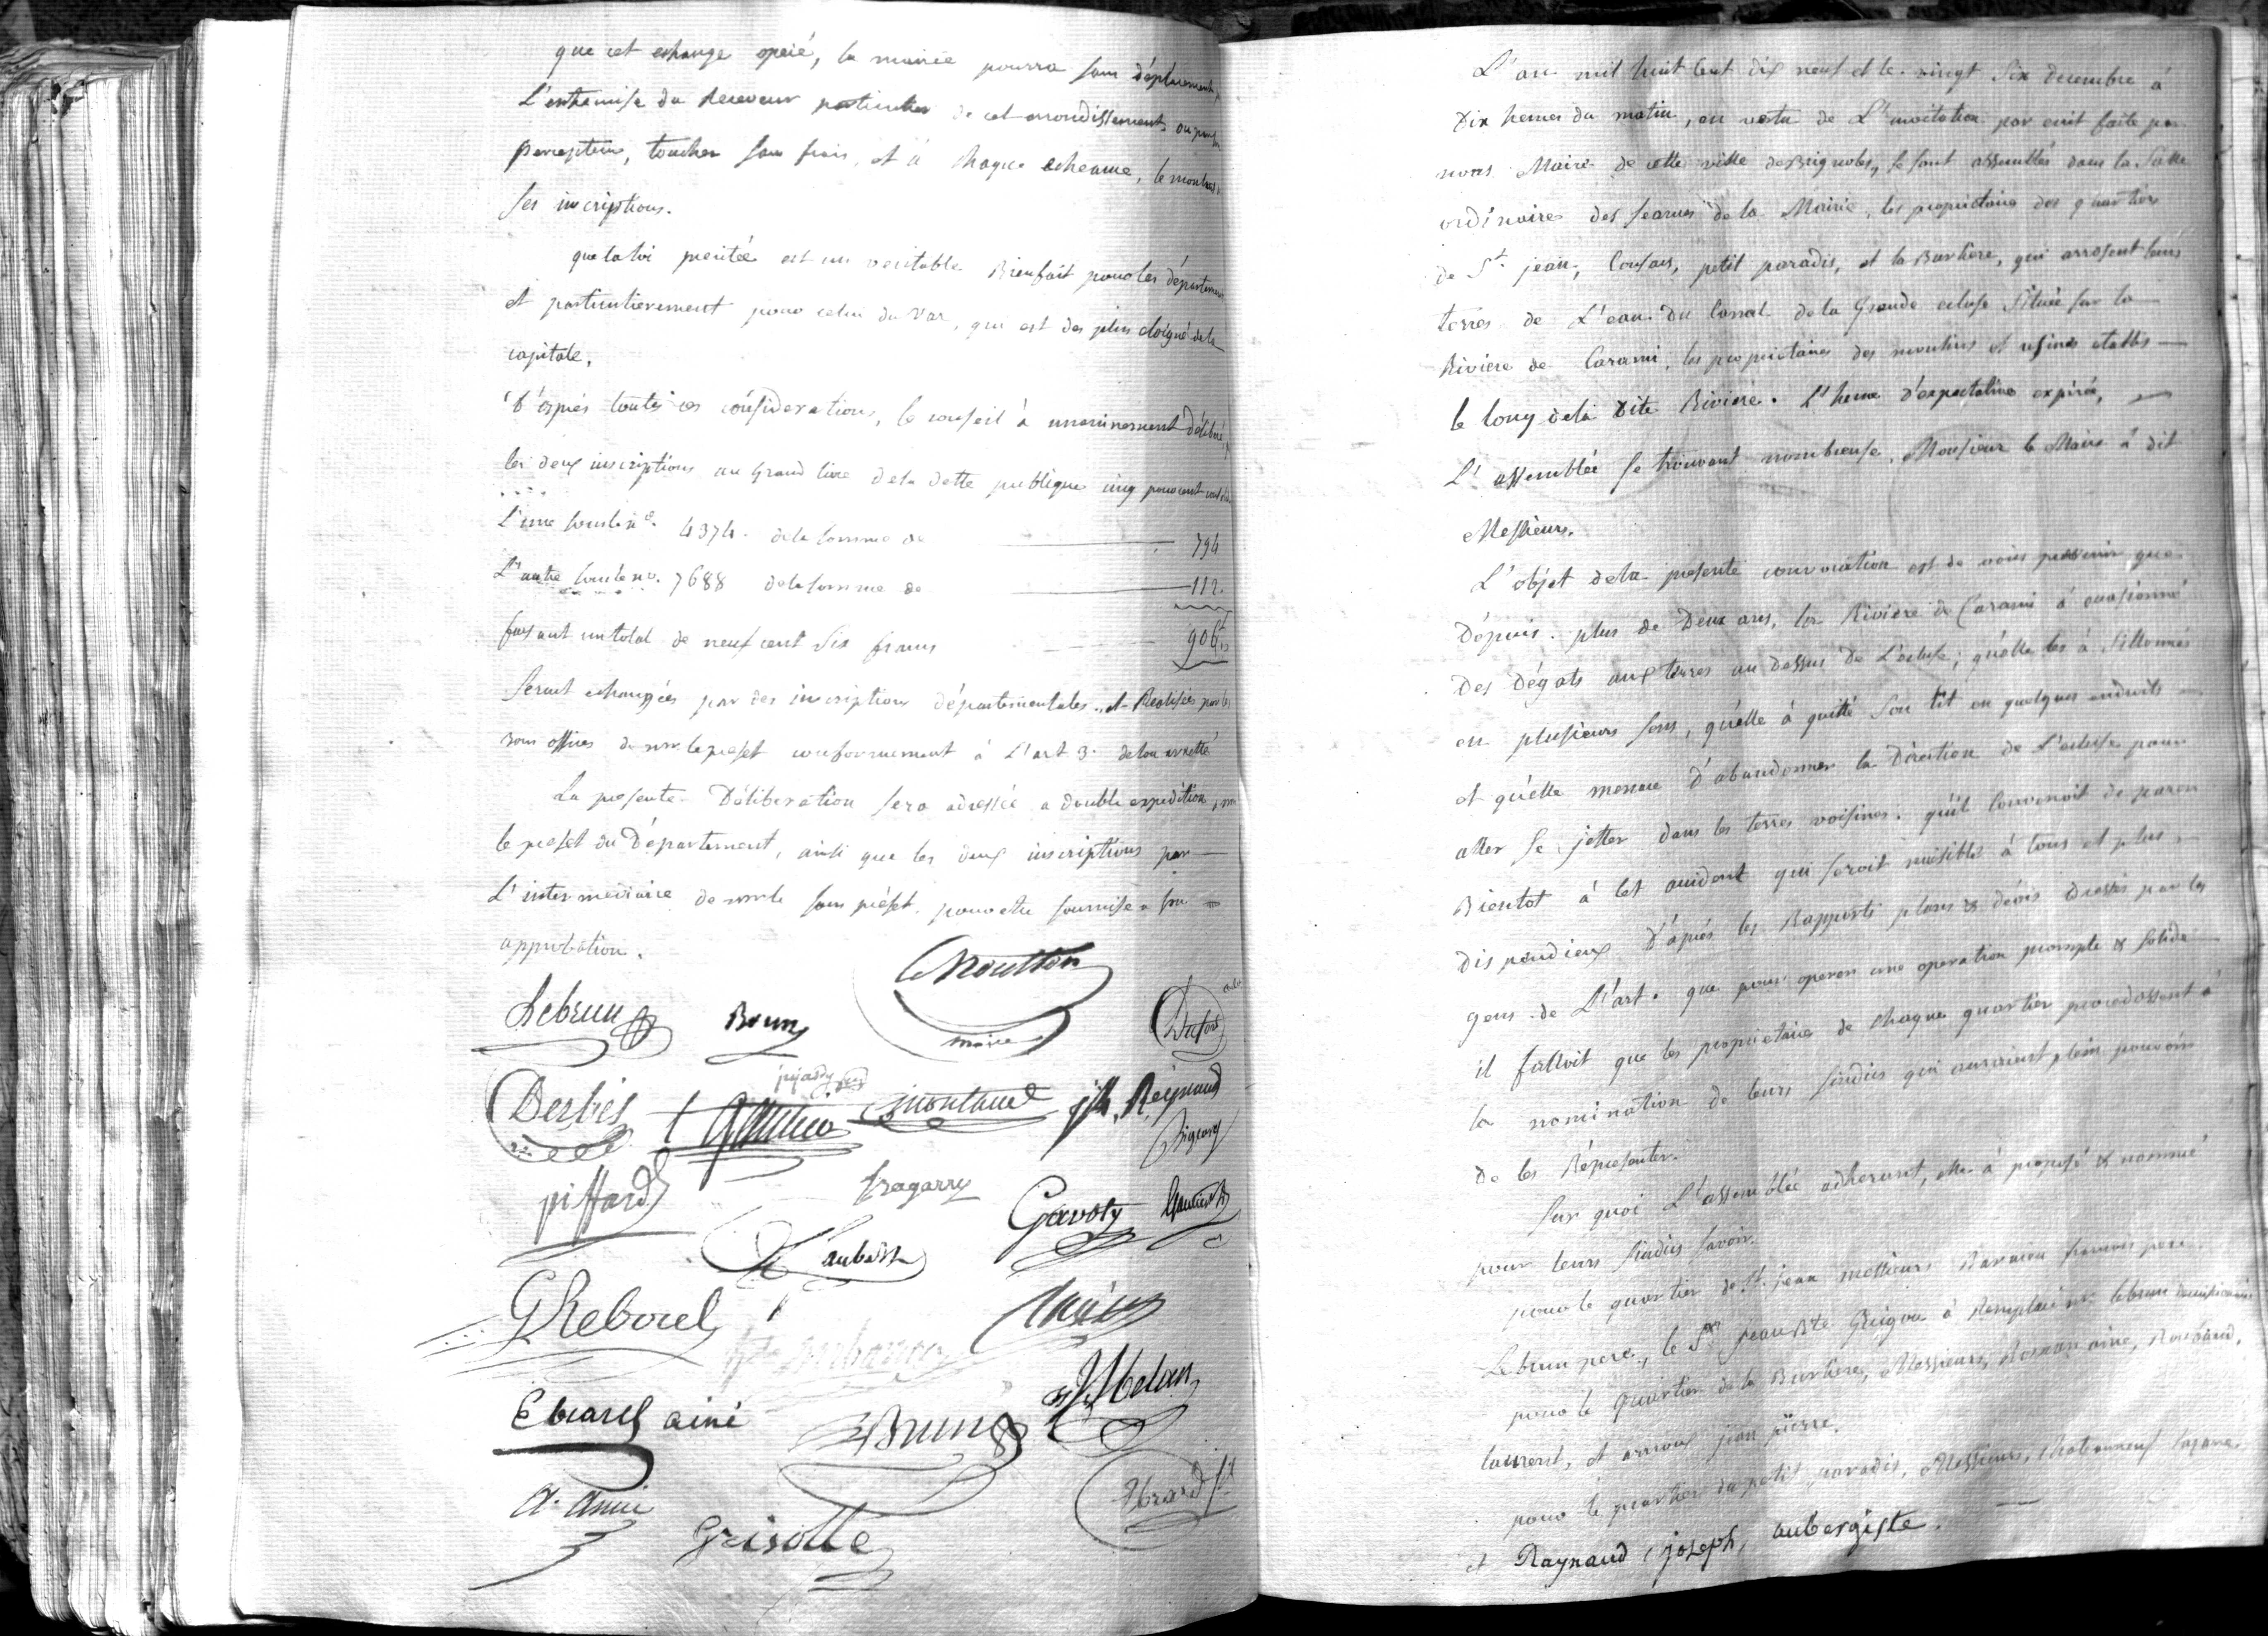 que cet echange operé, la mairie pourra sans déplacement,
L'entremise du Receveur particulier de cet arrondissement, ou
percepteur, toucher sans frais, et à chaque echeance, le montant
ses inscriptions.
que la loi precitée est un veritable Bienfait pour les départemens
et particulierement pour celui du Var, qui est des plus eloigné de la
capitale.
D'après toutes ces considerations, le conseil à unanimement délibéré,
les deux inscriptions au Grand livre de la dette publique cinq pour cent
L'une sous le n°. 4374. de la somme de 794
L'autre sous le n°. 7688 de la somme de 112.
faisant un total de neuf cent six francs 906
Seront echangées par des inscriptions départementales, et Realisées par les
bons offices de mr. le prefet conformement à L'art 3. de son arreté
La presente Déliberation sera adressée a double expedition, à mr
le prefet du Département, ainsi que les deux inscriptions par
L'intermediaire de mr le sous préfet, pour etre soumise a son
approbation.
Moutton
maire
Lebrun Brun
Derbès montanel Reÿnaud
piffard fragarry Gavoty Gautier
Jaubert
G Reboul
Ebrard ainé Brun Melan
A. Ami Ebrard fils
Grisolle
L'an mil huit cent dix neuf et le vingt six decembre à
Dix heures du matin, en vertu de L'invitation par ecrit faite par
nous Maire de cette ville de Brignoles, se sont assemblés dans la Salle
ordinaire des seances de la Mairie, les proprietaires des quartiers
de St. jean, Consacs, petit paradis, et la Burliere, qui arrosent leurs
terres de L'eau Du Canal de la Grande ecluse Située sur la
Riviere de Carami, les proprietaires des moulins et usines etablis
le long de la Dite Riviere. L'heure D'expectative expirée,
L'assemblée se trouvant nombreuse, Monsieur le Maire à dit
Messieurs,
L'objet de la presente convocation est de vous prevenir que
Dépuis plus de Deux ans, la Riviere de Carami à occasionné
Des Dégats aux terres au dessus De L'ecluse; qu'elle les à Sillonnés
en plusieurs sens, qu'elle à quitté Son Lit en quelques endroits
et qu'elle menace D'abandonner la Direction de L'ecluse pour
aller se jetter dans les terres voisines. qu'il Convenoit de parer
Bientot à cet accident qui seroit nuisible à tous et plus
Dispendieux D'après les Rapports plans & devis dressés par les
gens de L'art. que pour operer une operation prompte & solide
il falloit que les proprietaires de chaque quartier procedassent à
la nomination de leurs sindics qui auroient plein pouvoir
De les Répresenter.
Sur quoi L'assemblée adherant, elle à proposé & nommé
pour leurs sindics savoir.
pour le quartier de St. jean messieurs Barnieu francois pere,
Lebrun pere, le Sr jean Bte Grigou à Remplacé mr lebrun demissionaire
pour le quartier de la Burliere, Messieurs, Rossan ainé, Roubaud,
Laurent, et arnoux jean pierre.
pour le quartier du petit paradis, Messieurs, Chateauneuf Lazare
et Raynaud joseph, aubergiste.